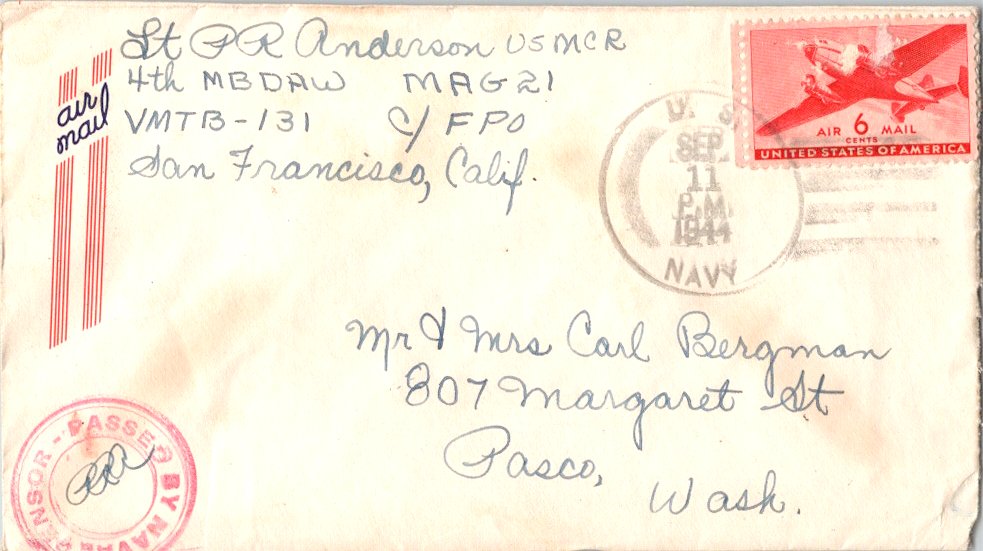 Lt PR Anderson USMCR
4th MBDAW MAG 21
VMTB-131 c/ FPO
San Francisco, Calif.
air
mail
U. S.
SEP
11
P.M.
1944
NAVY
AIR 6 MAIL
CENTS
UNITED STATES OF AMERICA
Mr & Mrs Carl Bergman
807 Margaret St
Pasco,
Wash.
PASSED BY NAVAL CENSOR
PRA